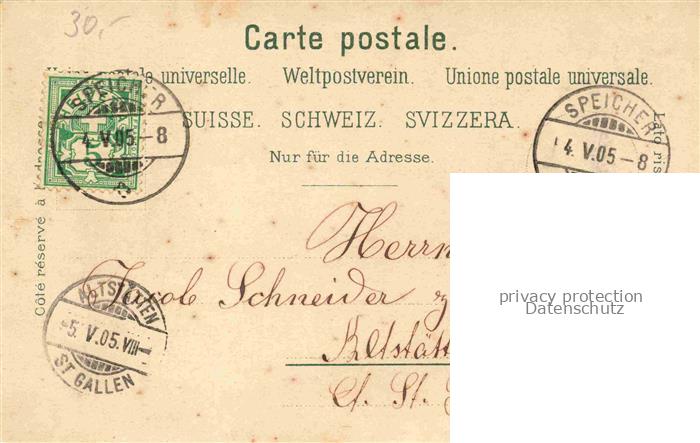 30,-
Carte postale.
Union postale universelle. Weltpostverein. Unione postale universale.
SUISSE. SCHWEIZ. SVIZZERA.
Nur für die Adresse.
Côté réservé à l'adresse
Lato ris
5
SPEICHER
4. V. 05 – 8
SPEICHER
14. V. 05 – 8
Herrn
Jacob Schneider z
Altstätt
Ct. St.
ALTSTÄTTEN
-5. V. 05. VIII–
ST GALLEN
privacy protection
Datenschutz